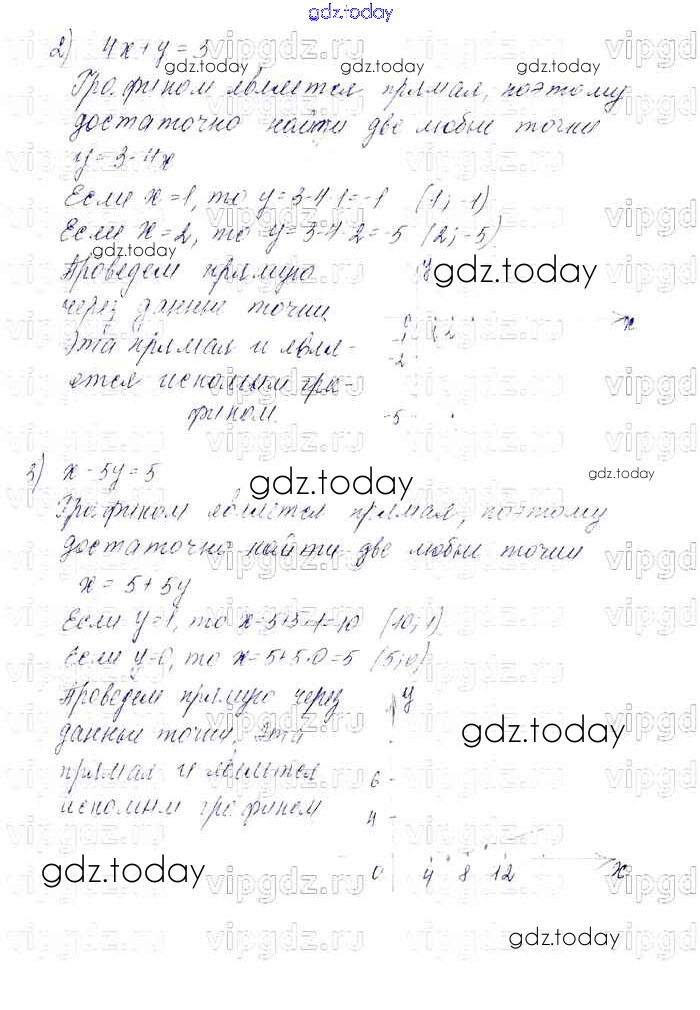 gdz.today
2) 4x+y=3
Графиком является прямая, поэтому
достаточно найти две любые точки
y=3-4x
Если x=1, то y=3-4·1=-1 (1;-1)
Если x=2, то y=3-4·2=-5 (2;-5)
Проведем прямую
через данные точки.
Эта прямая и явля-
ется искомым гра-
фиком.
y
0 1 2 x
-1
-2
-5
3) x-5y=5
Графиком является прямая, поэтому
достаточно найти две любые точки
x=5+5y
Если y=1, то x=5+5·1=10 (10;1)
Если y=0, то x=5+5·0=5 (5;0)
Проведем прямую через
данные точки. Эта
прямая и является
искомым графиком
y
6
4
0 4 8 12 x
gdz.today
vipgdz.ru